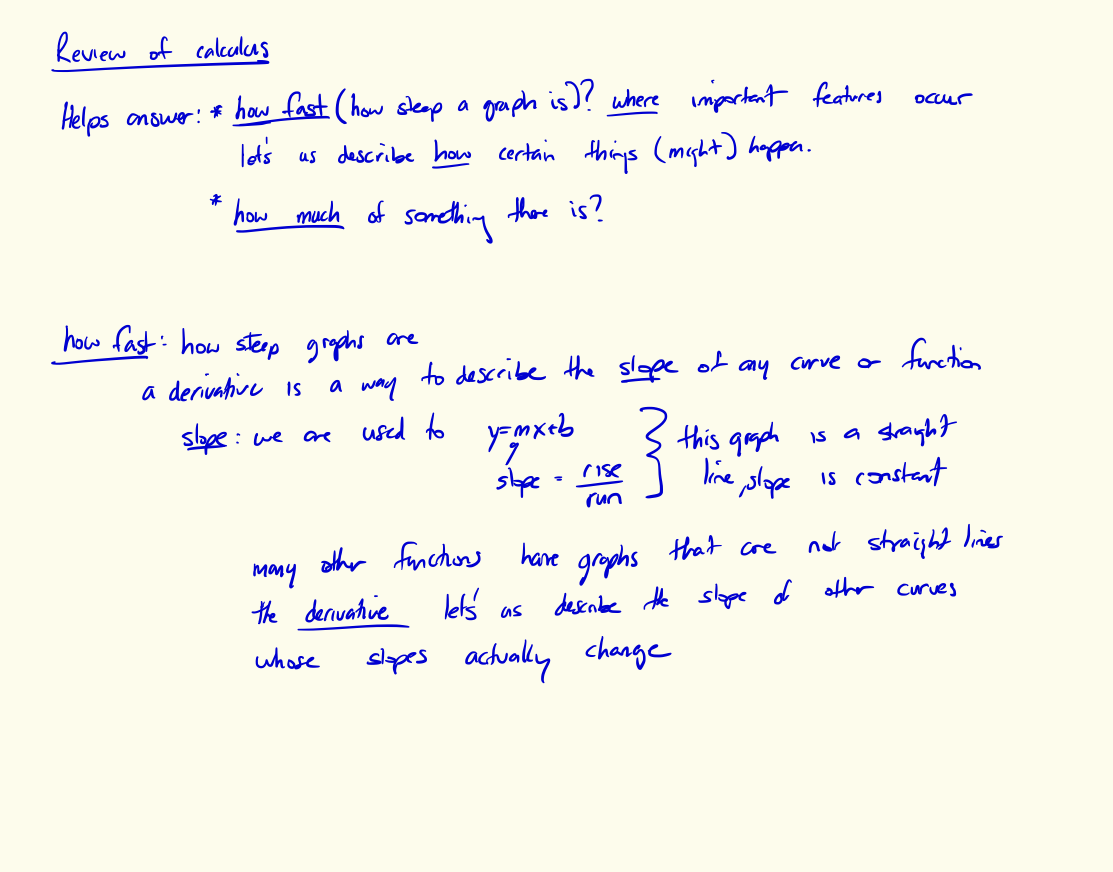 Review of calculus
Helps answer: * how fast (how steep a graph is)? where important features occur
let's us describe how certain things (might) happen.
* how much of something there is?
how fast: how steep graphs are
a derivative is a way to describe the slope of any curve or function
slope: we are used to y=mx+b } this graph is a straight
slope = rise/run line, slope is constant
many other functions have graphs that are not straight lines
the derivative let's us describe the slope of other curves
whose slopes actually change